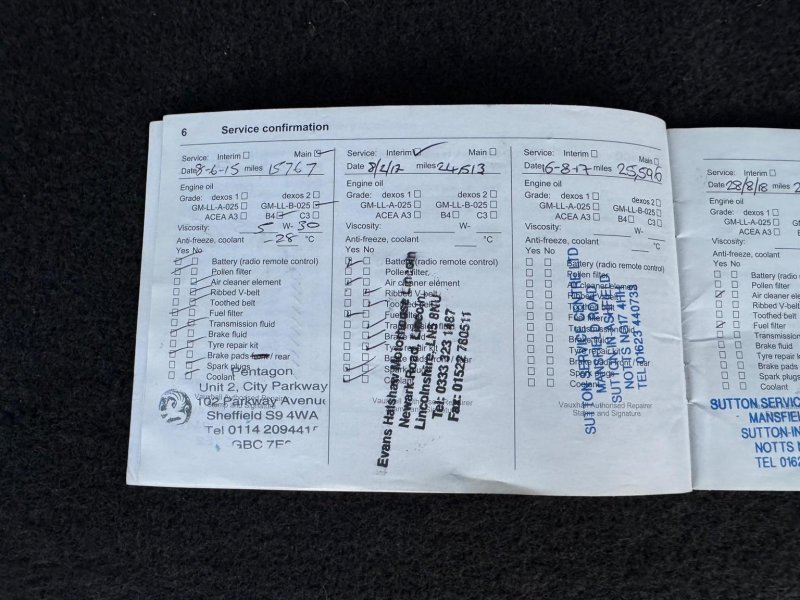 6 Service confirmation
Service: Interim Main
Date 8-6-15 miles 15767
Engine oil
Grade: dexos 1 dexos 2
GM-LL-A-025 GM-LL-B-025
ACEA A3 B4 C3
Viscosity: 5 W- 30
Anti-freeze, coolant -28 °C
Yes No
Battery (radio remote control)
Pollen filter
Air cleaner element
Ribbed V-belt
Toothed belt
Fuel filter
Transmission fluid
Brake fluid
Tyre repair kit
Brake pads / rear
Spark plugs
Coolant
Pentagon
Unit 2, City Parkway
102 Parkway Avenue
Sheffield S9 4WA
Tel 0114 2094415
Service: Interim Main
Date 8/2/17 miles 24513
Engine oil
Grade: dexos 1 dexos 2
GM-LL-A-025 GM-LL-B-025
ACEA A3 B4 C3
Viscosity: W-
Anti-freeze, coolant °C
Yes No
Battery (radio remote control)
Pollen filter
Air cleaner element
Ribbed V-belt
Fuel filter
Evans Halshaw Motorhouse Lincoln
Newark Road, Lincoln
Lincolnshire LN5 8RU
Tel: 0333 323 1587
Fax: 01522 780511
Vauxhall Authorised Repairer
Service: Interim Main
Date 16-8-17 miles 25,596
Engine oil
Grade: dexos 1 dexos 2
GM-LL-A-025 GM-LL-B-025
ACEA A3 B4 C3
Viscosity: W-
Anti-freeze, coolant °C
Yes No
Battery (radio remote control)
Pollen filter
Air cleaner element
Ribbed V-belt
Toothed belt
Fuel filter
SUTTON SERVICE CENTRE LTD
MANSFIELD ROAD
SUTTON-IN-ASHFIELD
NOTTS NG17 4HN
TEL 01623 440733
Vauxhall Authorised Repairer
Stamp and Signature
Service: Interim
Date 28/8/18 miles
Engine oil
Grade: dexos 1
GM-LL-A-025
ACEA A3
Viscosity:
Anti-freeze, coolant
Yes No
Battery (radio
Pollen filter
Air cleaner ele
Ribbed V-belt
Toothed belt
Fuel filter
Transmission
Brake fluid
Tyre repair k
Brake pads
Spark plugs
Coolant
SUTTON SERVIC
MANSFIE
SUTTON-IN
NOTTS N
TEL 0162